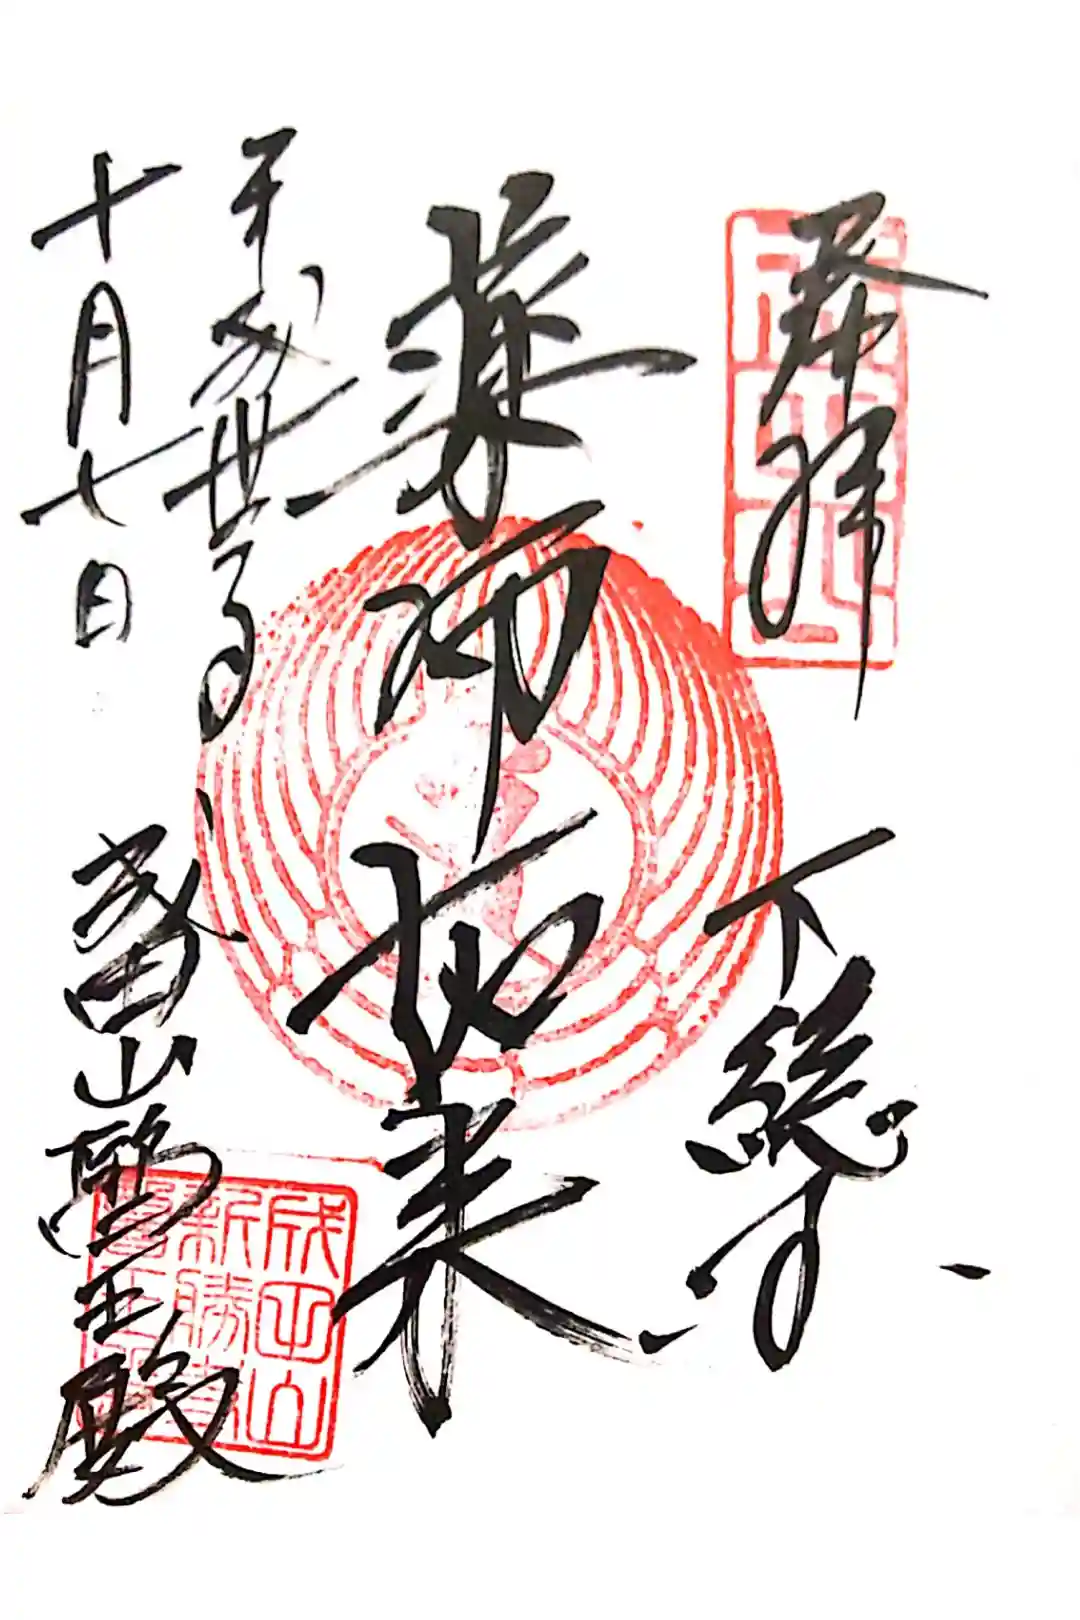 奉拝
下総
薬師如来
平成丗年
十月七日
成田山醫王殿
成田山
新勝寺
醫王殿